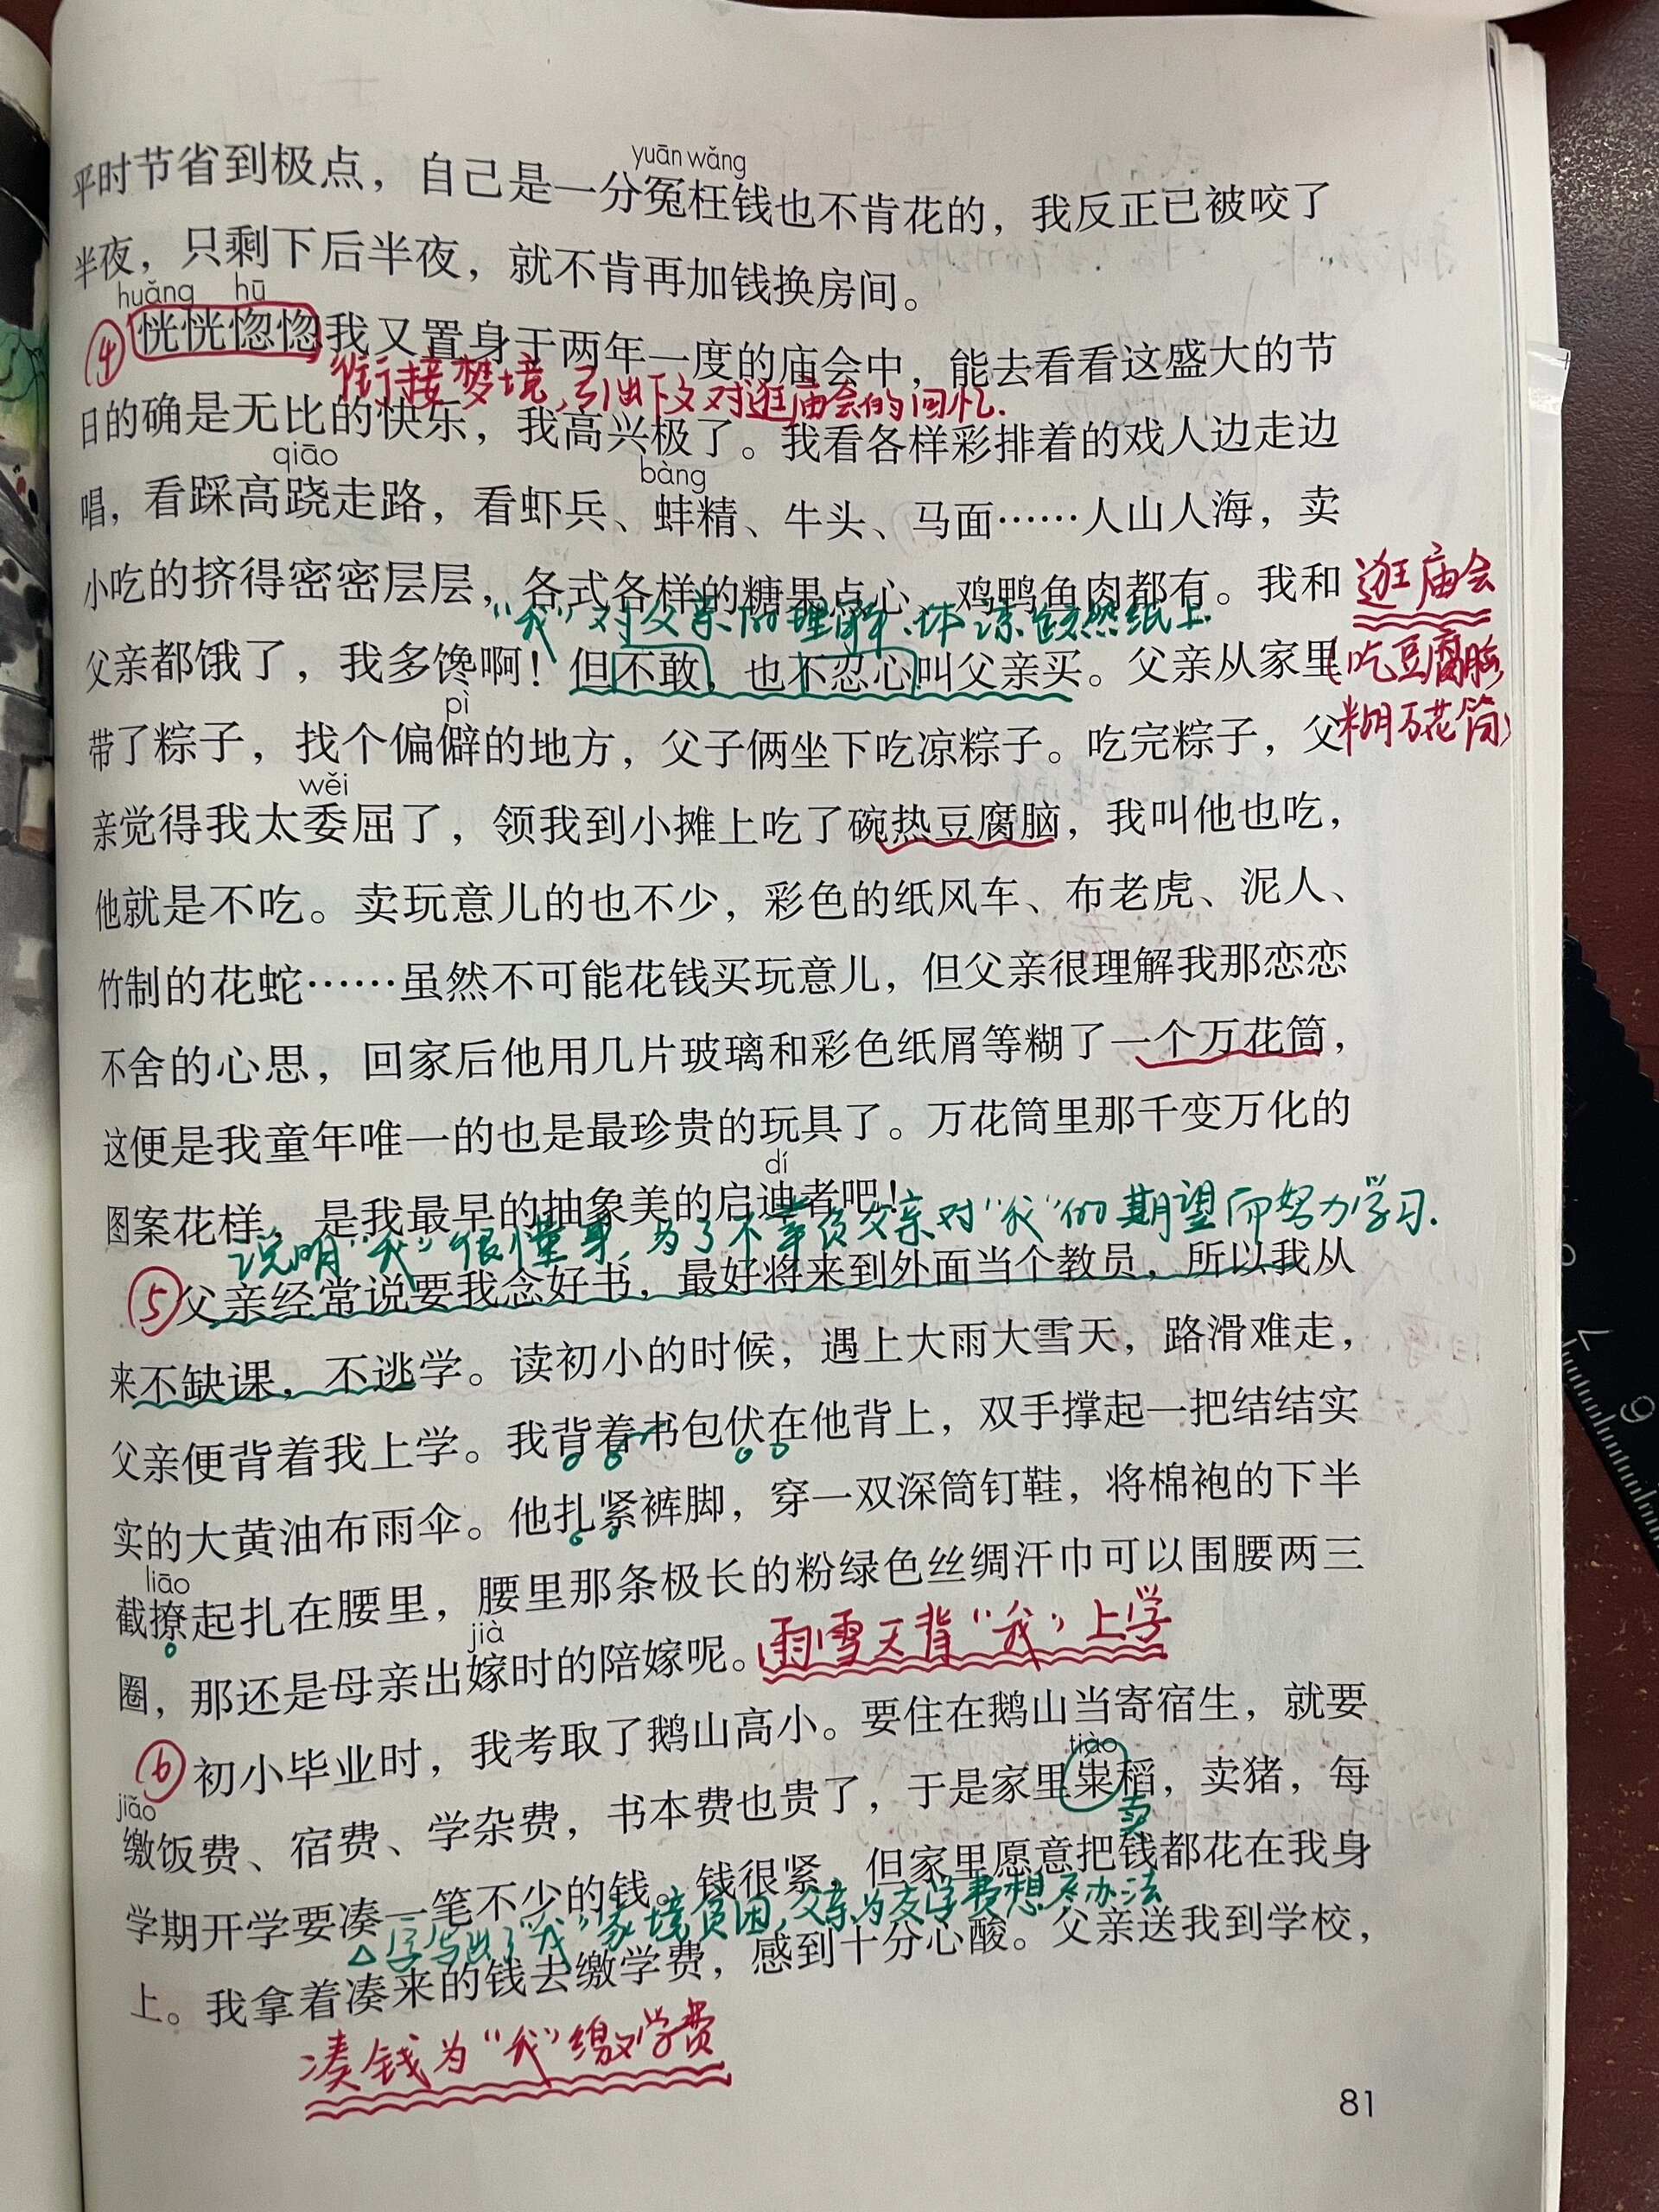 yuān wǎng
平时节省到极点，自己是一分冤枉钱也不肯花的，我反正已被咬了
半夜，只剩下后半夜，就不肯再加钱换房间。
huǎng hū
④ 恍恍惚惚我又置身于两年一度的庙会中，能去看看这盛大的节
衔接梦境，引出下文对逛庙会的回忆.
日的确是无比的快乐，我高兴极了。我看各样彩排着的戏人边走边
qiāo bàng
唱，看踩高跷走路，看虾兵、蚌精、牛头、马面……人山人海，卖
小吃的挤得密密层层，各式各样的糖果点心、鸡鸭鱼肉都有。我和
逛庙会
“我”对父亲的理解、体谅跃然纸上.
父亲都饿了，我多馋啊！但不敢，也不忍心叫父亲买。父亲从家里
(吃豆腐脑,
pì
带了粽子，找个偏僻的地方，父子俩坐下吃凉粽子。吃完粽子，父
糊万花筒)
wěi
亲觉得我太委屈了，领我到小摊上吃了碗热豆腐脑，我叫他也吃，
他就是不吃。卖玩意儿的也不少，彩色的纸风车、布老虎、泥人、
竹制的花蛇……虽然不可能花钱买玩意儿，但父亲很理解我那恋恋
不舍的心思，回家后他用几片玻璃和彩色纸屑等糊了一个万花筒，
这便是我童年唯一的也是最珍贵的玩具了。万花筒里那千变万化的
dí
图案花样，是我最早的抽象美的启迪者吧！
说明“我”很懂事，为了不辜负父亲对“我”的期望而努力学习.
⑤ 父亲经常说要我念好书，最好将来到外面当个教员，所以我从
来不缺课，不逃学。读初小的时候，遇上大雨大雪天，路滑难走，
父亲便背着我上学。我背着书包伏在他背上，双手撑起一把结结实
实的大黄油布雨伞。他扎紧裤脚，穿一双深筒钉鞋，将棉袍的下半
liāo
截撩起扎在腰里，腰里那条极长的粉绿色丝绸汗巾可以围腰两三
jià
圈，那还是母亲出嫁时的陪嫁呢。
雨雪天背“我”上学
⑥ 初小毕业时，我考取了鹅山高小。要住在鹅山当寄宿生，就要
jiǎo tiào
缴饭费、宿费、学杂费，书本费也贵了，于是家里粜稻，卖猪，每
卖
学期开学要凑一笔不少的钱。钱很紧，但家里愿意把钱都花在我身
写出了“我”家境贫困，父亲为交学费想尽办法
上。我拿着凑来的钱去缴学费，感到十分心酸。父亲送我到学校，
凑钱为“我”缴学费
81
7
9